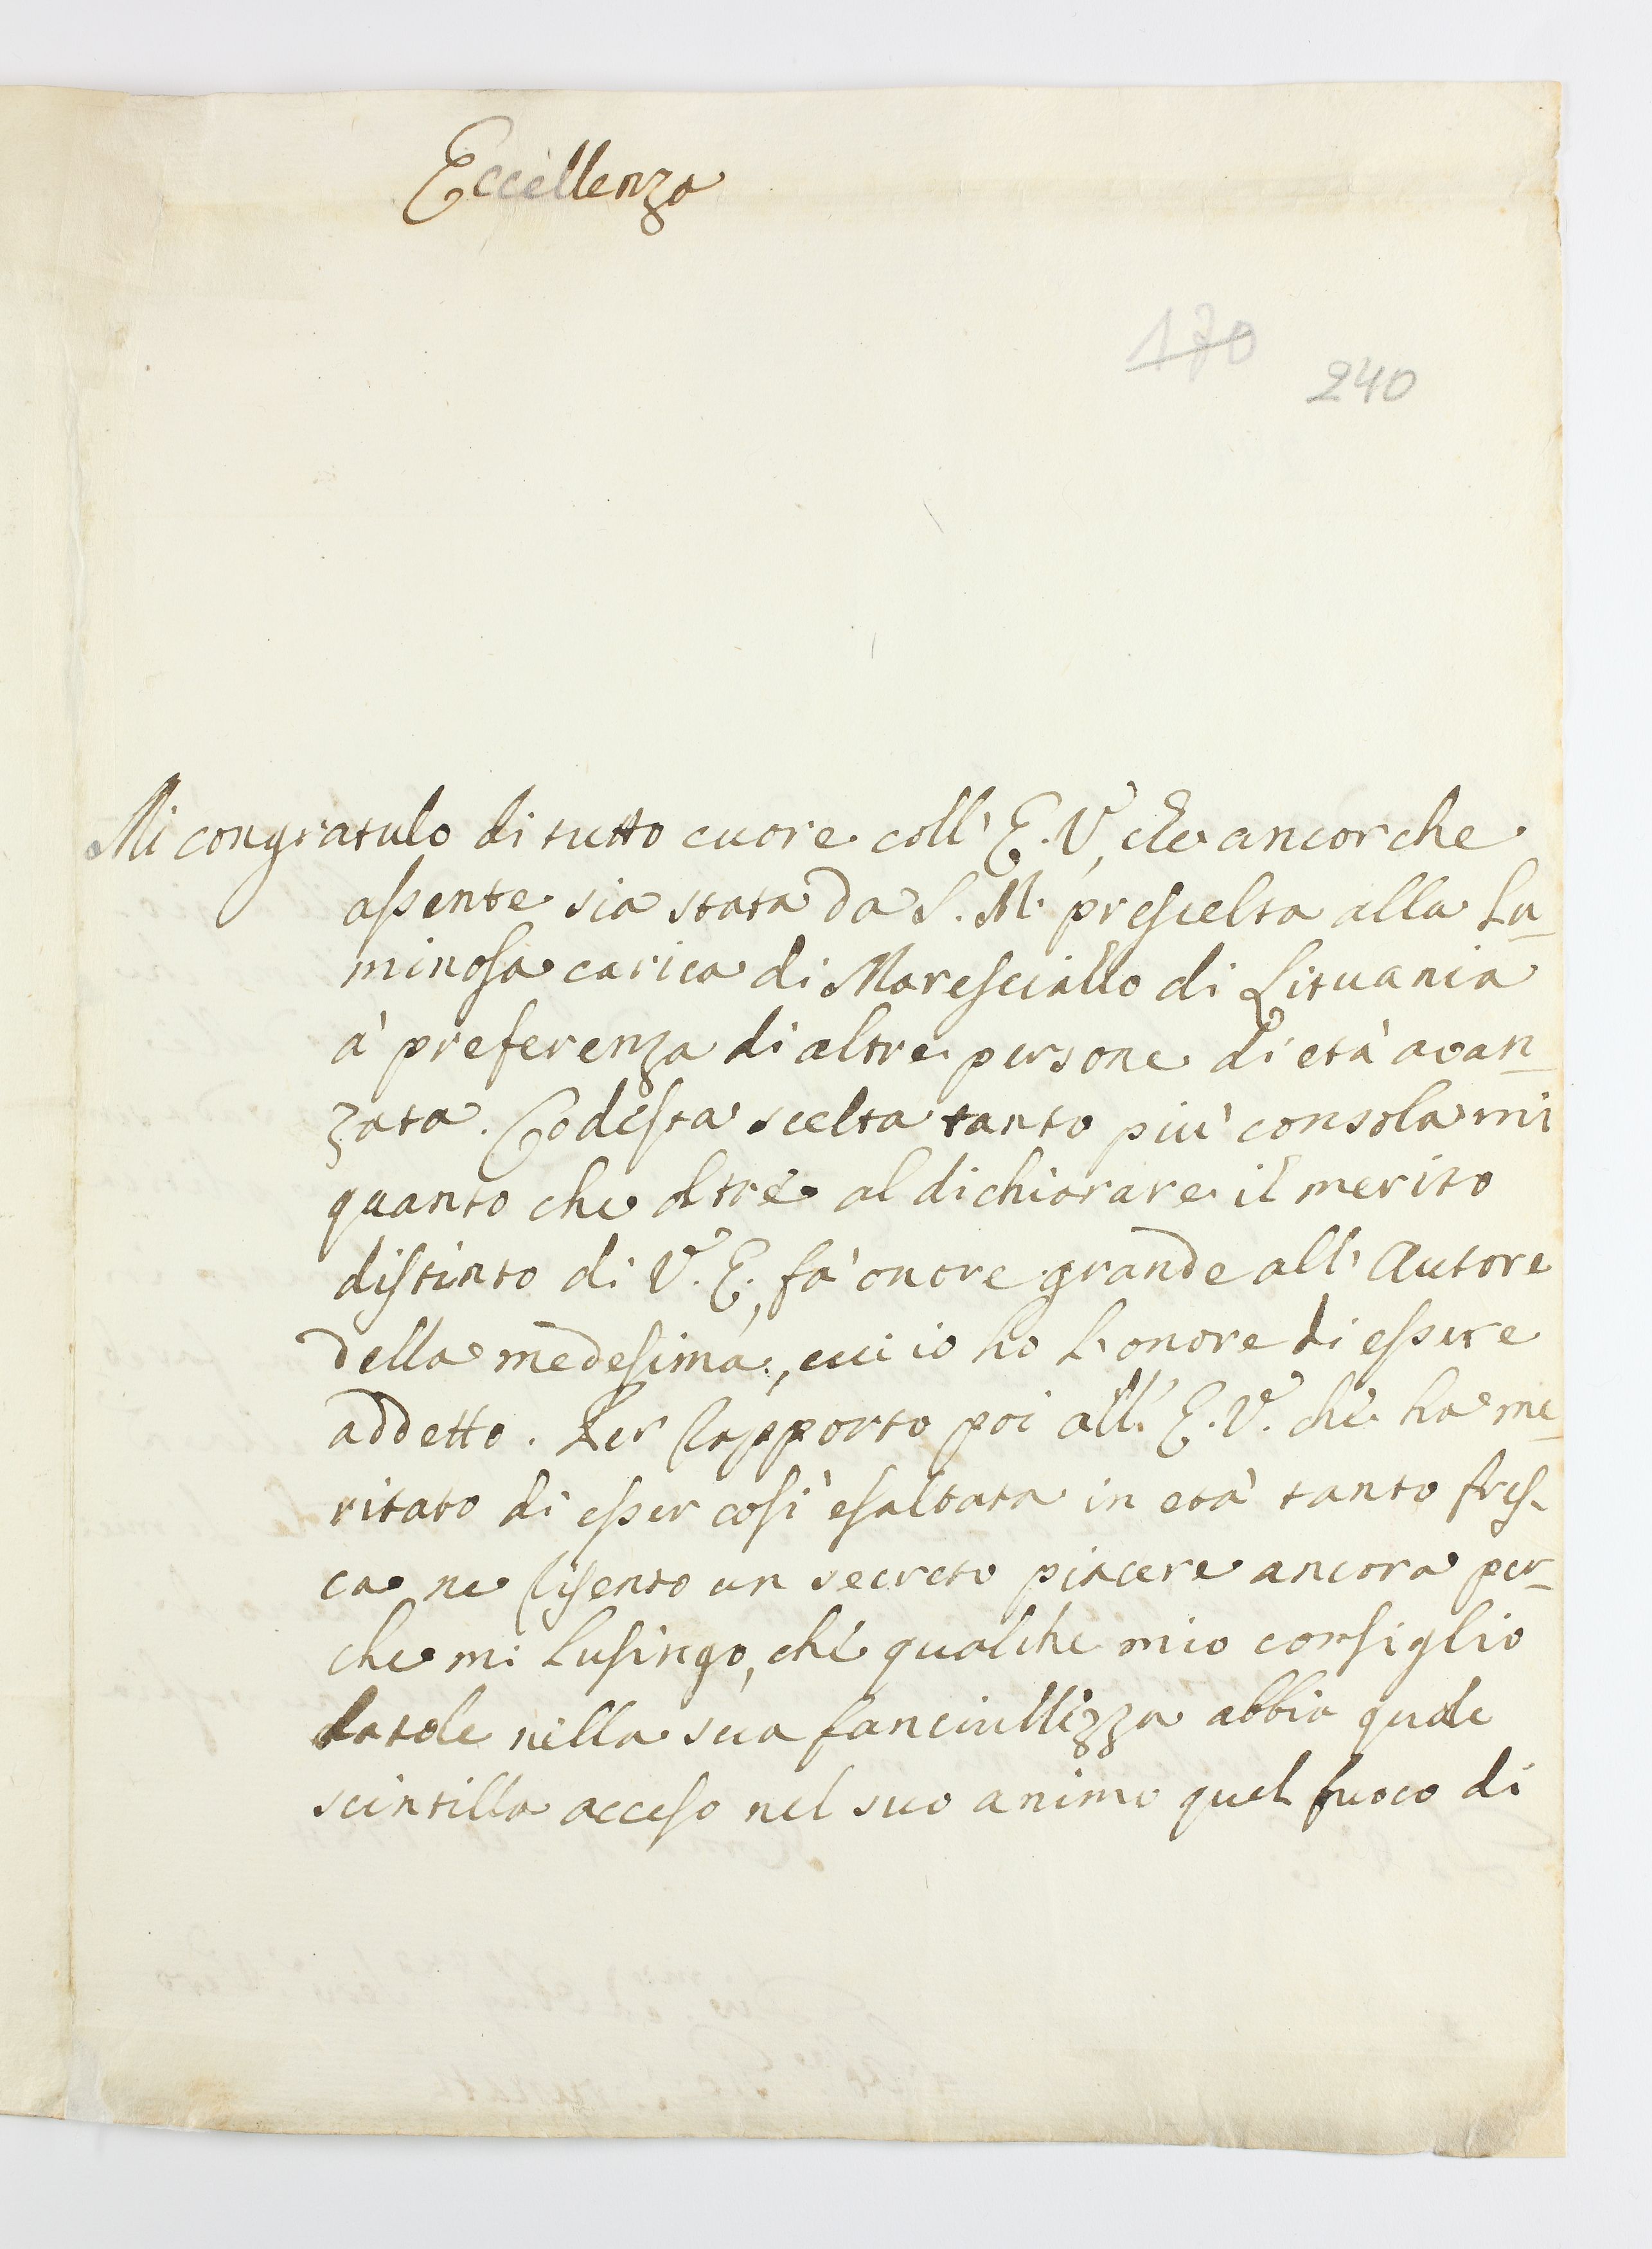 Eccellenza
170
240
Mi congratulo di tutto cuore coll' E. V., che ancorche
assente sia stata da S. M. prescelta alla Lu-
minosa carica di Maresciallo di Lituania
à preferenza di altre persone di età avan-
zata. Codesta scelta tanto più consolami
quanto che oltre al dichiarare il merito
distinto di V. E., fà onore grande all' Autore
della medesima, cui io ho l'onore di essere
addetto. Per rapporto poi all' E. V. che ha me-
ritato di esser così esaltata in età tanto fres-
ca ne risento un secreto piacere ancora per-
che mi lusingo, che qualche mio consiglio
datole nella sua fanciullezza abbia quale
scintilla acceso nel suo animo quel fuoco di